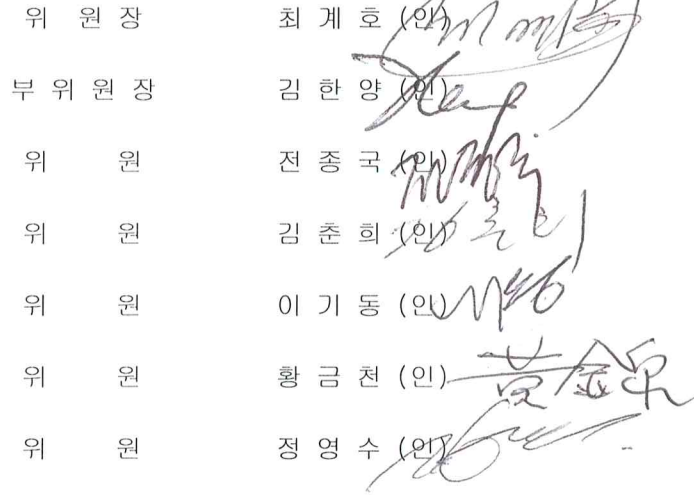 위 원장 최 계 호 (인)
부 위 원 장 김 한 양 (인)
위 원 전 종 국 (인)
위 원 김 춘 희 (인)
위 원 이 기 동 (인)
위 원 황 금 천 (인) 黃金泉
위 원 정 영 수 (인)